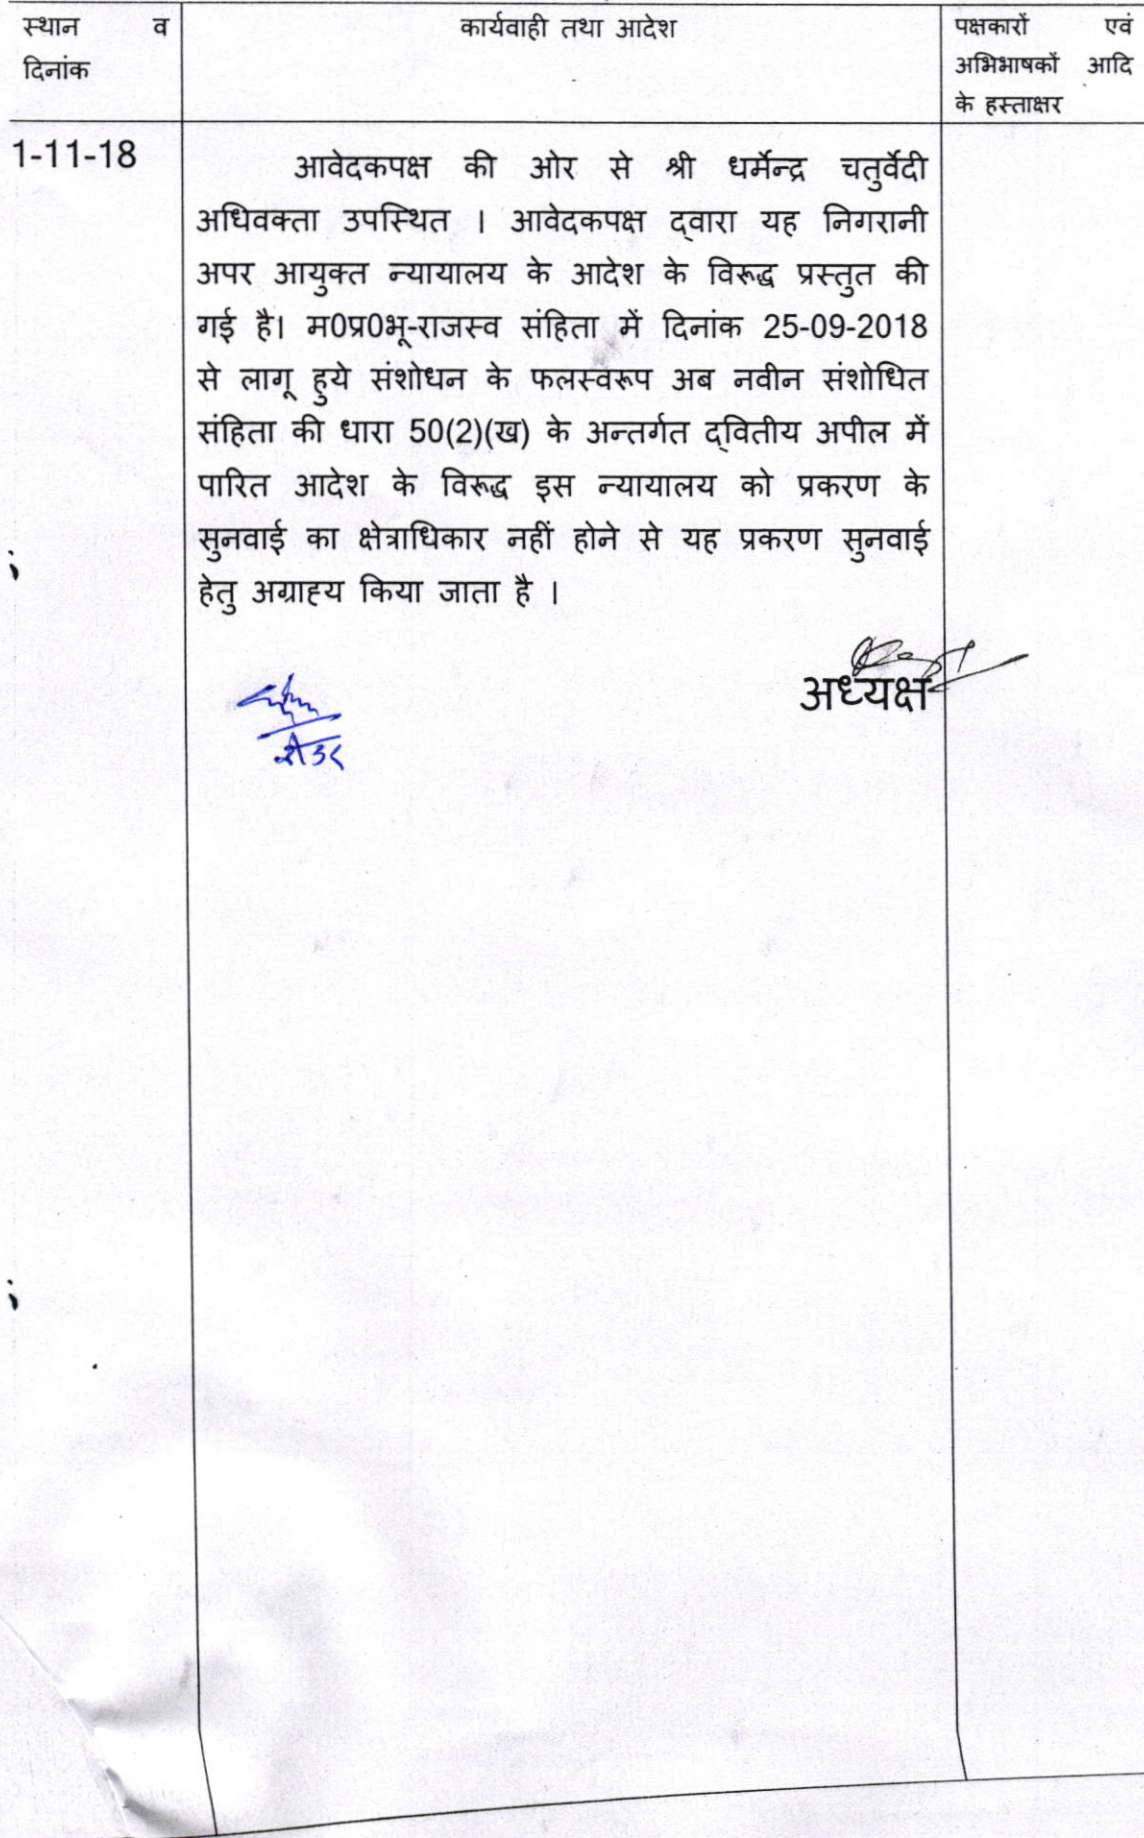 स्थान व
दिनांक
कार्यवाही तथा आदेश
पक्षकारों एवं
अभिभाषकों आदि
के हस्ताक्षर
1-11-18
आवेदकपक्ष की ओर से श्री धर्मेन्द्र चतुर्वेदी
अधिवक्ता उपस्थित । आवेदकपक्ष द्वारा यह निगरानी
अपर आयुक्त न्यायालय के आदेश के विरूद्ध प्रस्तुत की
गई है। म0प्र0भू-राजस्व संहिता में दिनांक 25-09-2018
से लागू हुये संशोधन के फलस्वरूप अब नवीन संशोधित
संहिता की धारा 50(2)(ख) के अन्तर्गत द्वितीय अपील में
पारित आदेश के विरूद्ध इस न्यायालय को प्रकरण के
सुनवाई का क्षेत्राधिकार नहीं होने से यह प्रकरण सुनवाई
हेतु अग्राह्य किया जाता है ।
अध्यक्ष